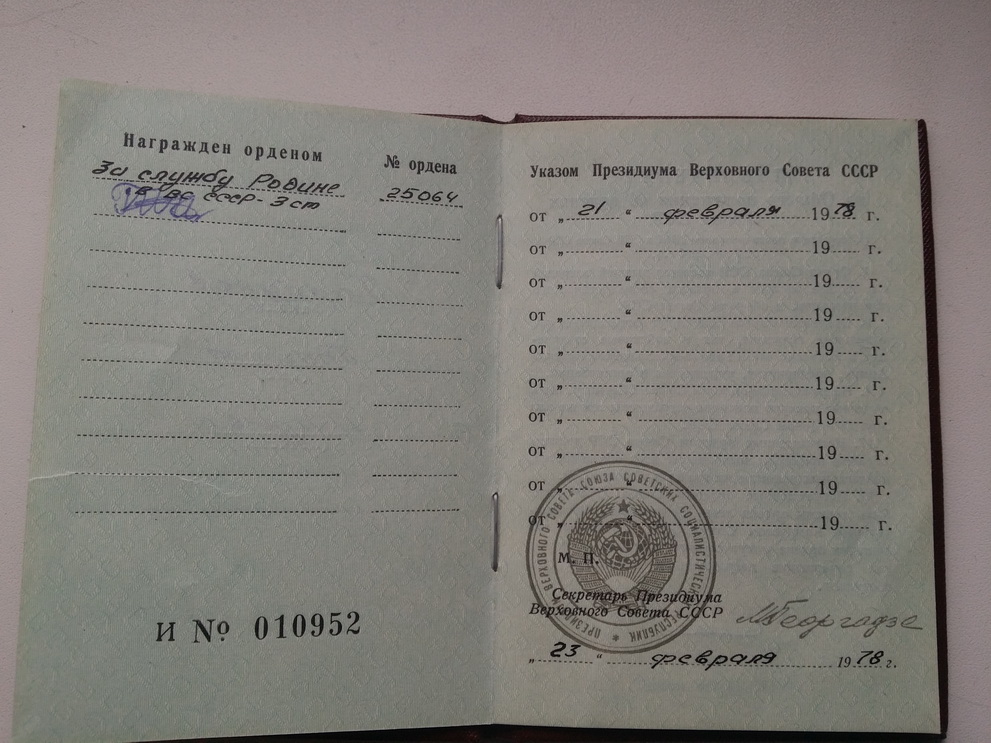 Награжден орденом
№ ордена
За службу Родине
25064
в ВС СССР - 3 ст
И № 010952
Указом Президиума Верховного Совета СССР
от „ 21 “ февраля 1978 г.
от „ “ 19 г.
от „ “ 19 г.
от „ “ 19 г.
от „ “ 19 г.
от „ “ 19 г.
от „ “ 19 г.
от „ “ 19 г.
от „ “ 19 г.
от „ “ 19 г.
ПРЕЗИДИУМ ВЕРХОВНОГО СОВЕТА СОЮЗА СОВЕТСКИХ СОЦИАЛИСТИЧЕСКИХ РЕСПУБЛИК
М. П.
Секретарь Президиума
Верховного Совета СССР
МГеоргадзе
„ 23 “ февраля 1978 г.